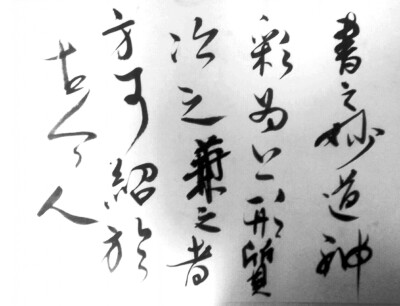 書之妙道神
彩為上形質
次之兼之者
方可紹於
古人人